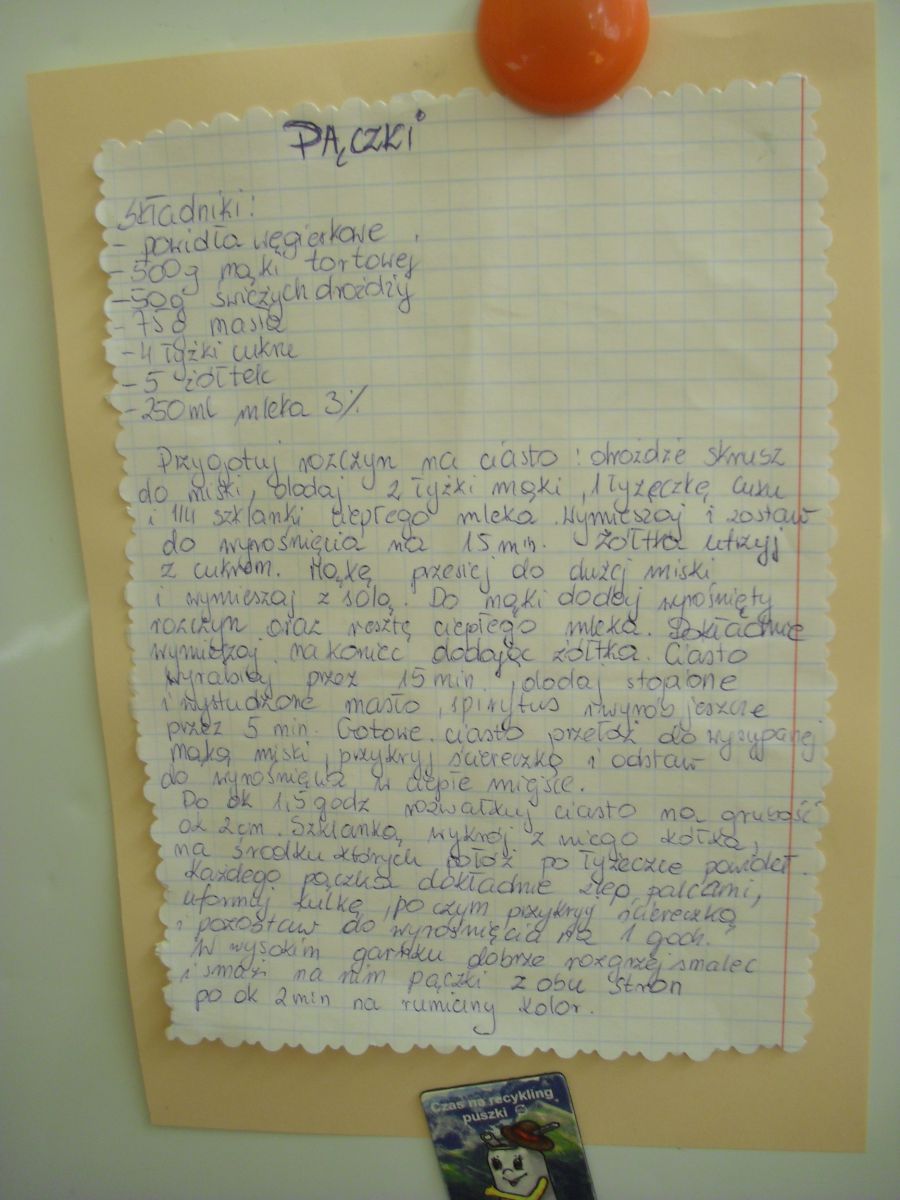 PĄCZKI
Składniki:
- powidła węgierkowe
- 500g mąki tortowej
- 50g świeżych drożdży
- 75g masła
- 4 łyżki cukru
- 5 żółtek
- 250ml mleka 3%
Przygotuj rozczyn na ciasto: drożdże skrusz
do miski, dodaj 2 łyżki mąki, 1 łyżeczkę cukru
i 1/4 szklanki ciepłego mleka. Wymieszaj i zostaw
do wyrośnięcia na 15 min. Żółtka utrzyj
z cukrem. Mąkę przesiej do dużej miski
i wymieszaj z solą. Do mąki dodaj wyrośnięty
rozczyn oraz resztę ciepłego mleka. Dokładnie
wymieszaj na koniec dodając żółtka. Ciasto
wyrabiaj przez 15 min., dodaj stopione
i wystudzone masło, spirytus i wyrób jeszcze
przez 5 min. Gotowe ciasto przełóż do wysypanej
mąką miski, przykryj ściereczką i odstaw
do wyrośnięcia w ciepłe miejsce.
Do ok 1,5 godz rozwałkuj ciasto na grubość
ok 2cm. Szklanką wykrój z niego kółka,
na środku których połóż po łyżeczce powideł.
Każdego pączka dokładnie zlep palcami,
uformuj kulkę, po czym przykryj ściereczką
i pozostaw do wyrośnięcia na 1 godz.
W wysokim garnku dobrze rozgrzej smalec
i smaż na nim pączki z obu stron
po ok 2min na rumiany kolor.
Czas na recykling
puszki